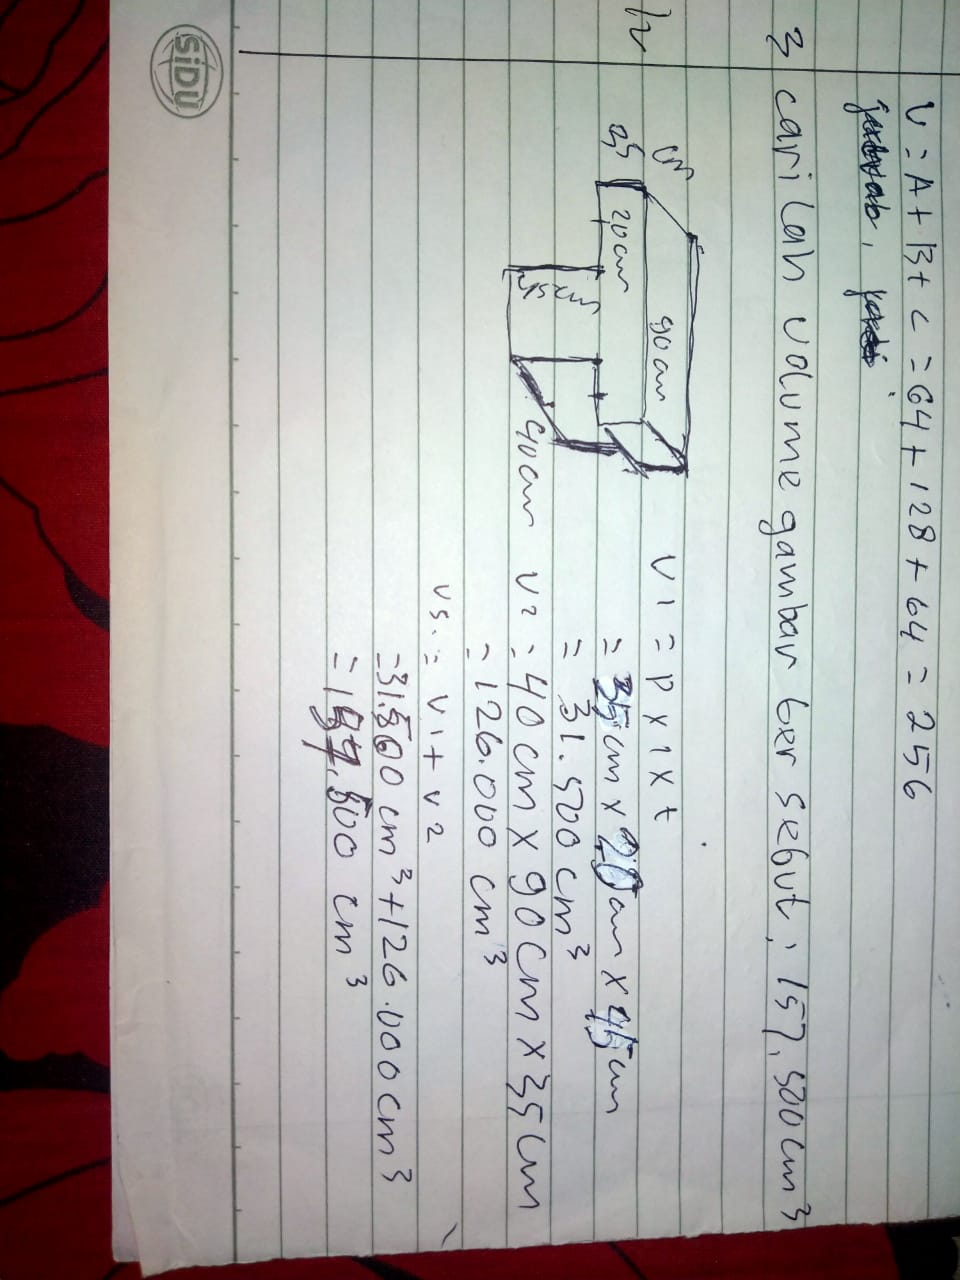 V = A + B + C = 64 + 128 + 64 = 256
3 carilah volume gambar ber sebut : 157.500 cm³
90 cm
20 cm
35
cm
45
cm
40 cm
V1 = P x l x t
= 35 cm x 20 cm x 45 cm
= 31.500 cm³
V2 = 40 cm x 90 cm x 35 cm
= 126.000 cm³
Vs. = V1 + V2
= 31.500 cm³ + 126.000 cm³
= 157.500 cm³
SiDU